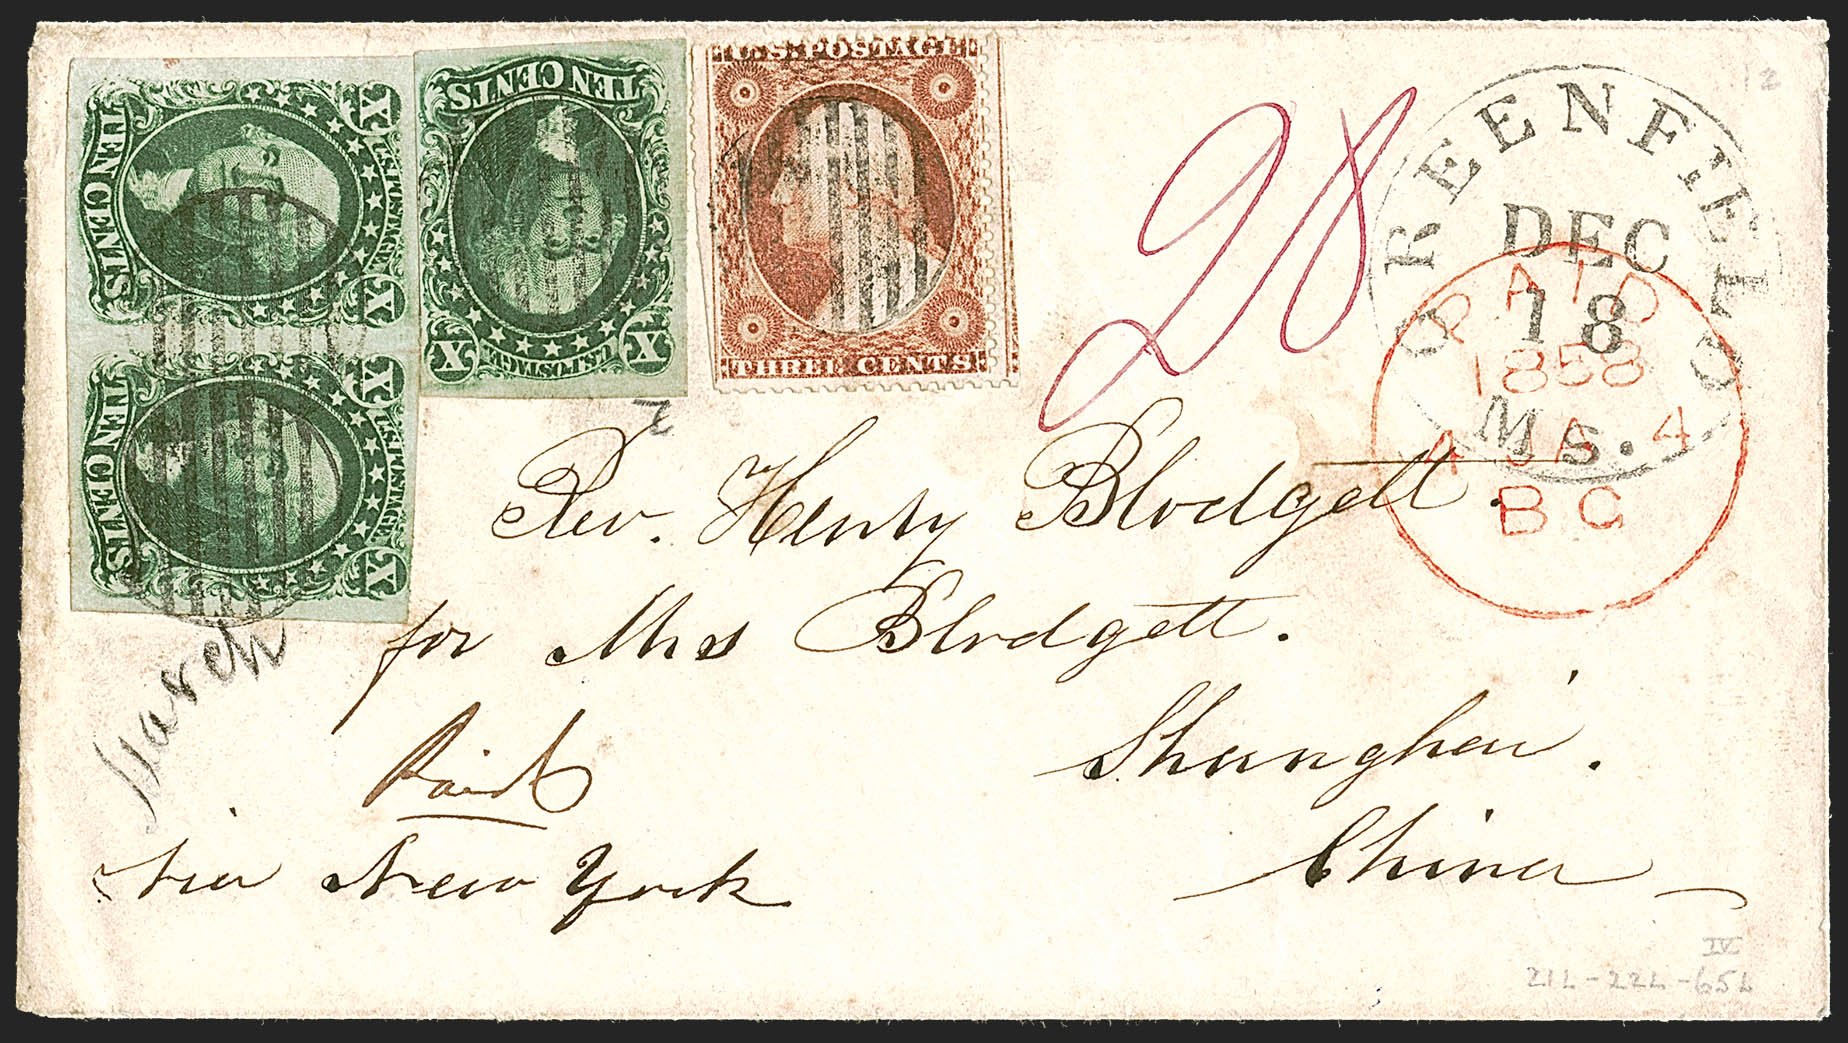 X TEN CENTS X
U.S. POSTAGE
X TEN CENTS X
U.S. POSTAGE
TEN CENTS
X U.S. POSTAGE X
U.S. POSTAGE
THREE CENTS
28
GREENFIELD
DEC
18
Ms.
PAID
1858
JA 4
BC
2
Rev. Henry Blodgett.
for Mrs Blodgett.
Shanghai.
China
March
Paid
via New York
IV
21L-22L-65L